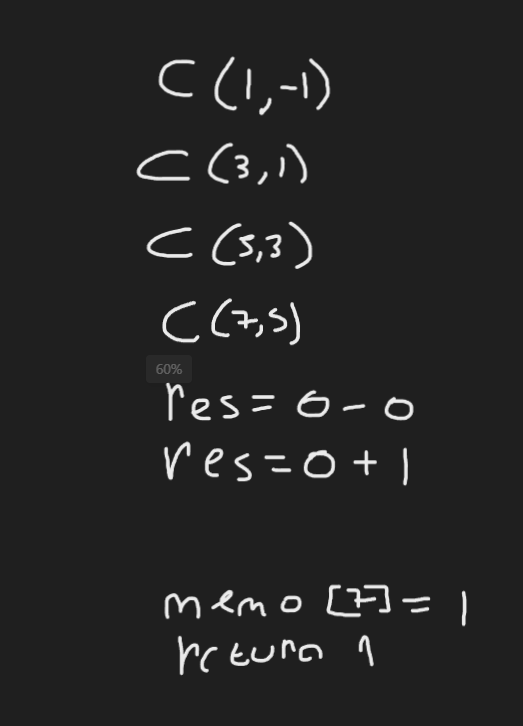 C (1,-1)
C (3,1)
C (5,3)
C (7,5)
60%
res= 0 - 0
res=0 + 1
memo [7]= 1
return 1